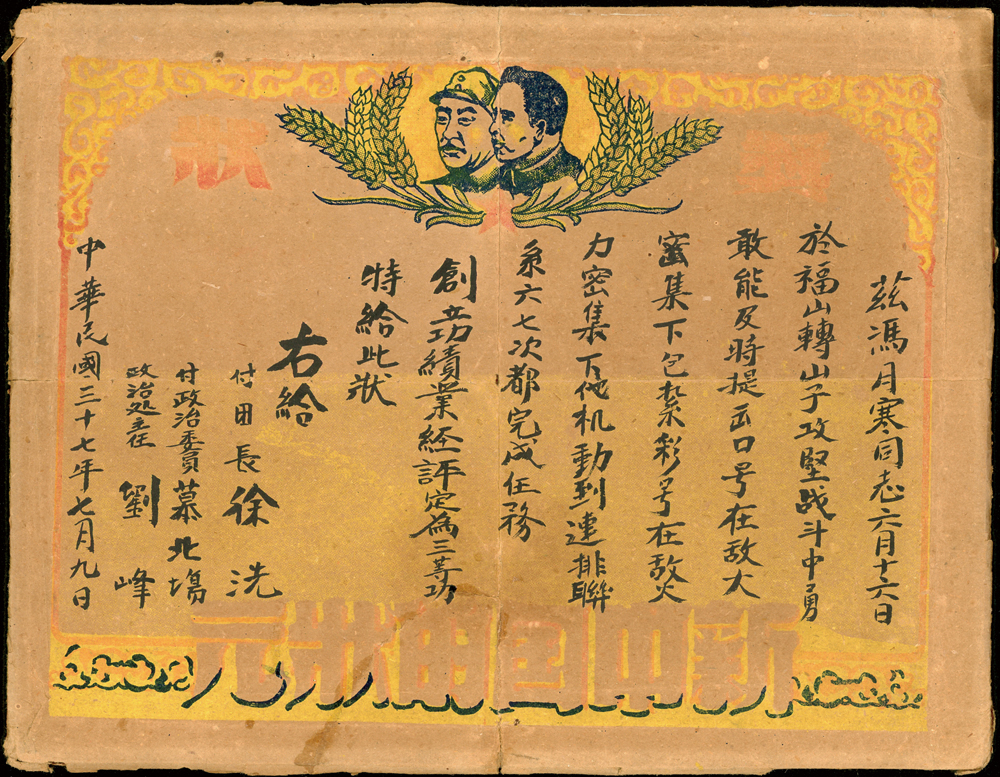 狀
茲馮月寒同志六月十六日
於福山轉山子攻堅战斗中勇
敢能及時提出口号在敌火
密集下包紮彩号在敌火
力密集下他机動到連排聯
系六七次都完成任務
創立功績業经評定為三等功
特給此狀
右給
付团長 徐洗
付政治委員 慕北塲
政治処主任 劉峰
中華民國三十七年七月九日
新中国的狀元